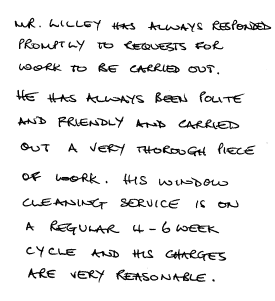 MR. WILLEY HAS ALWAYS RESPONDED
PROMPTLY TO REQUESTS FOR
WORK TO BE CARRIED OUT.
HE HAS ALWAYS BEEN POLITE
AND FRIENDLY AND CARRIED
OUT A VERY THOROUGH PIECE
OF WORK. HIS WINDOW
CLEANING SERVICE IS ON
A REGULAR 4-6 WEEK
CYCLE AND HIS CHARGES
ARE VERY REASONABLE.